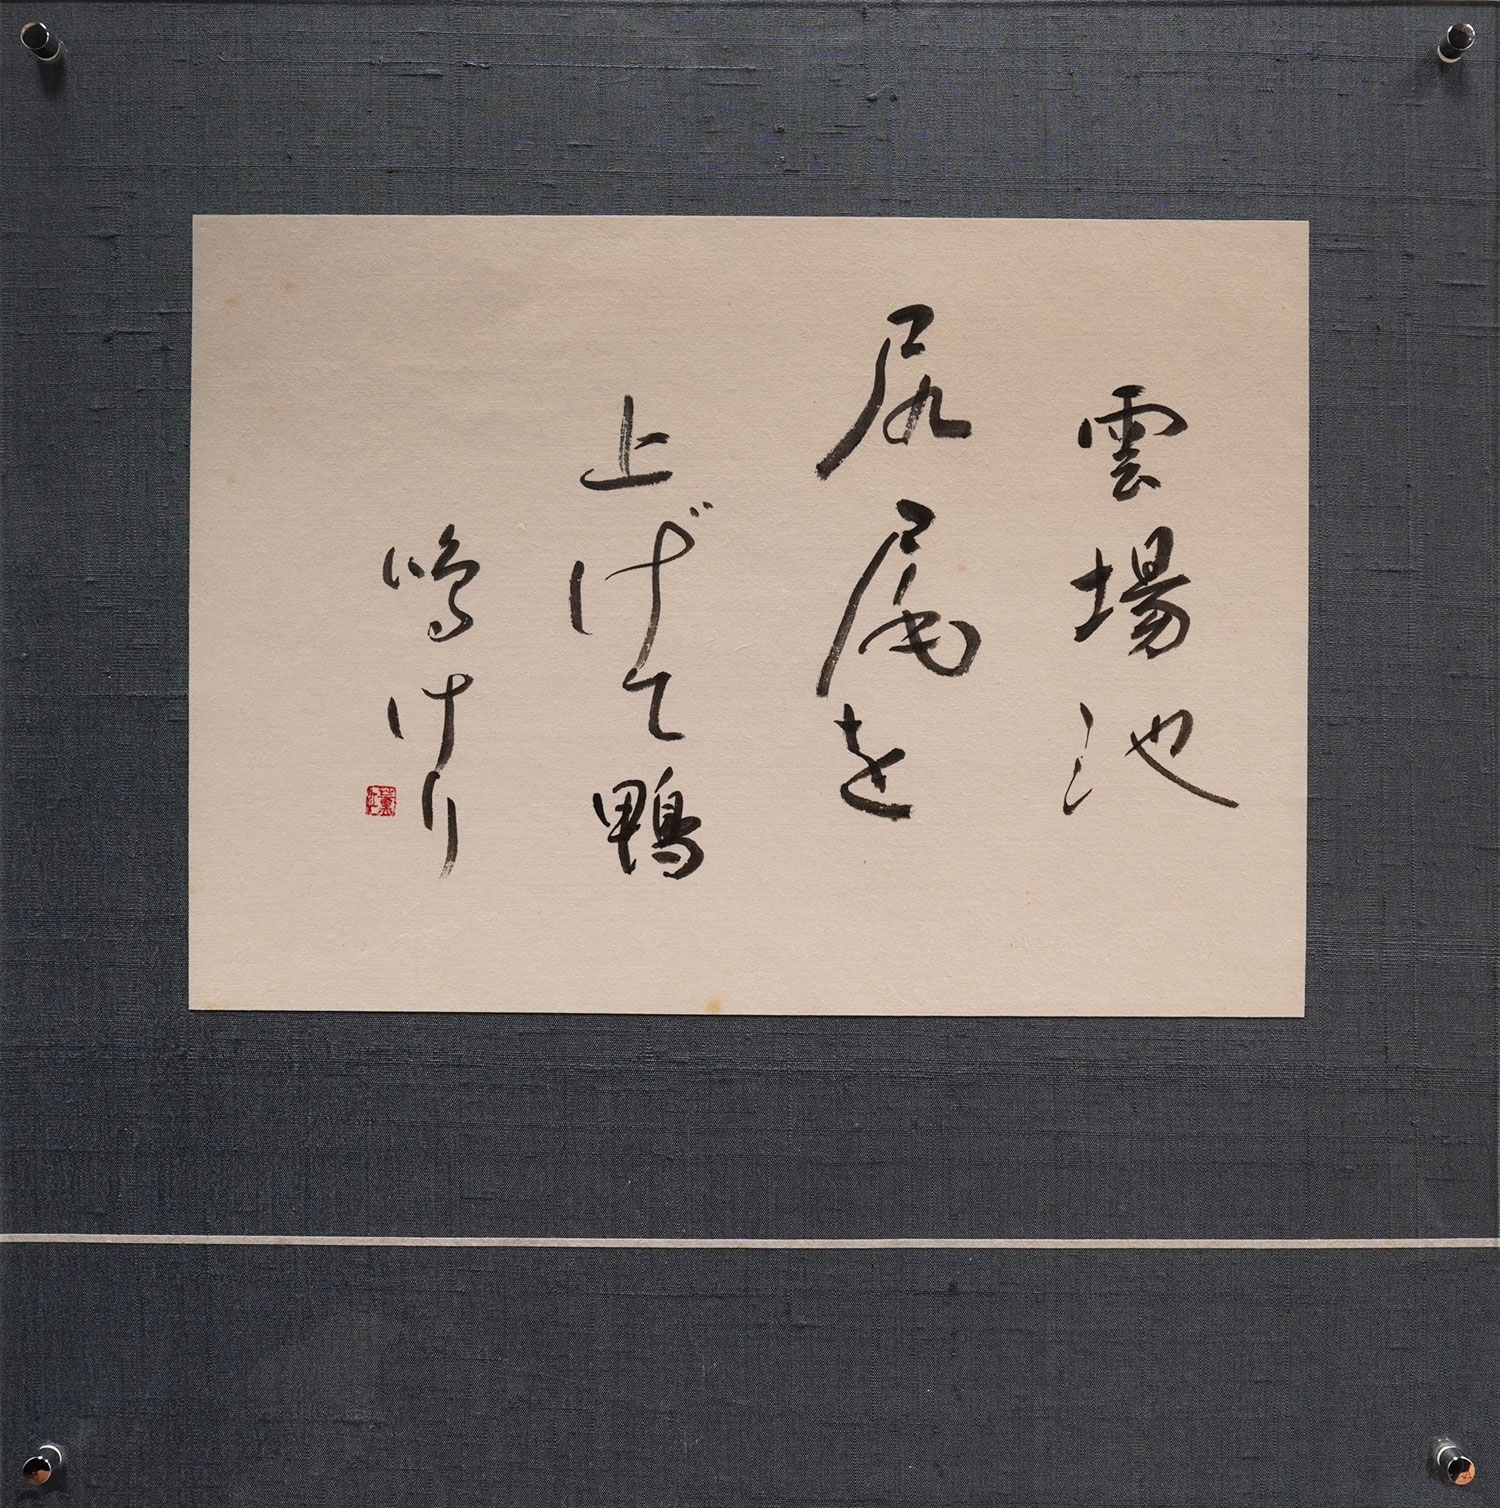 雲場池
尻尾を
上げて鴨
鳴けり